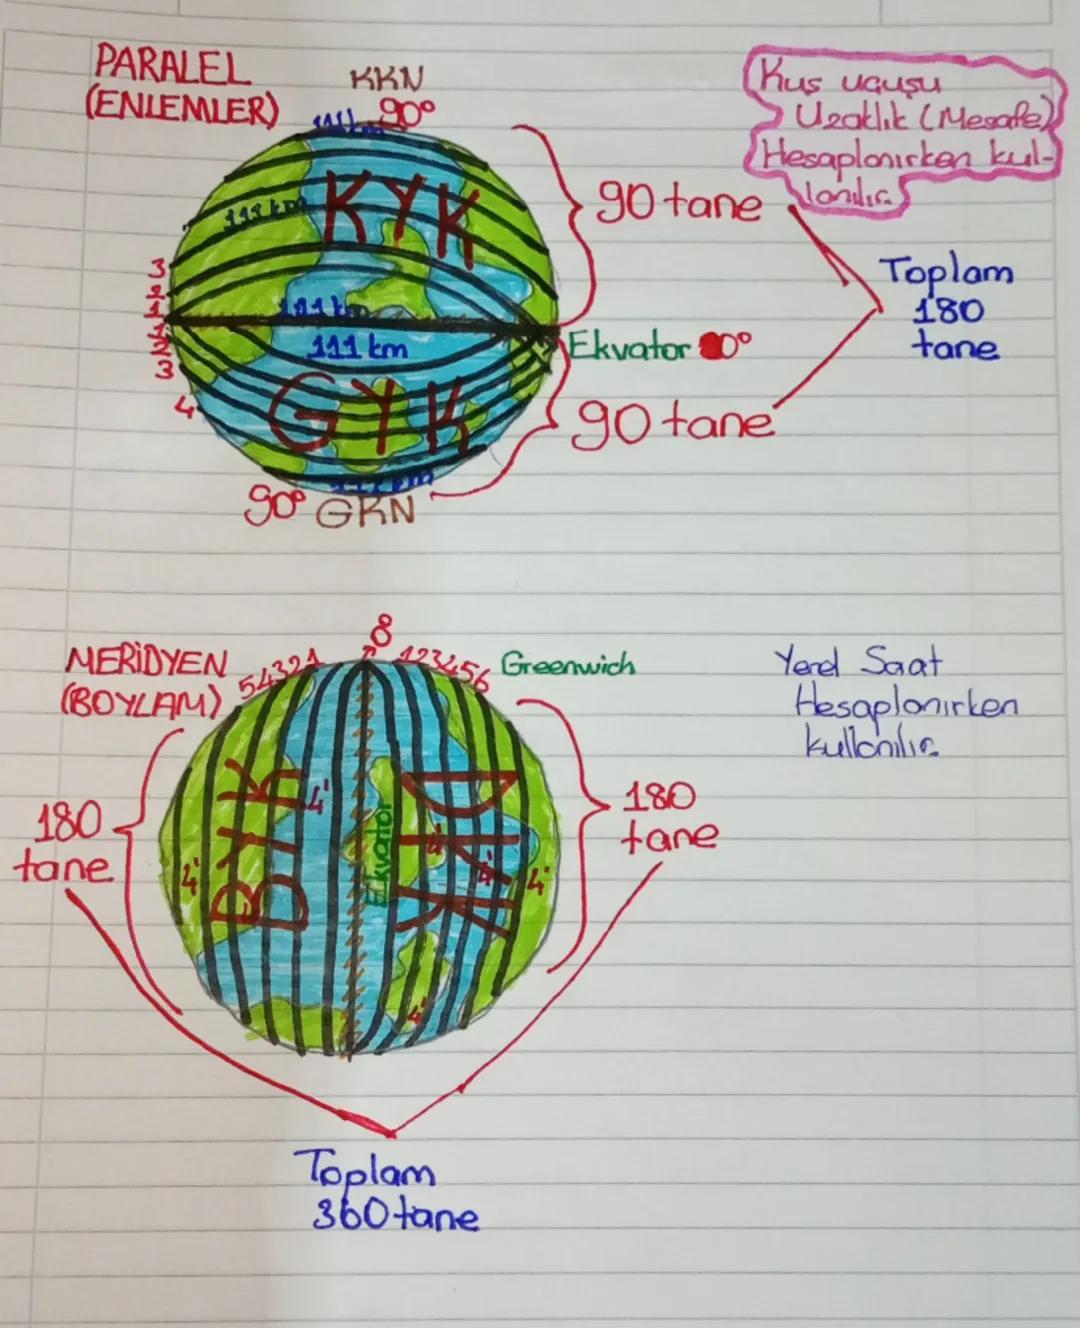 PARALEL
(ENLEMLER)
KKN
90°
Kuş uçuşu
Uzaklık (Mesafe)
Hesaplanırken kul-
lanılır.
111 km
KYK
111 km
90 tane
3
2
1
111 km
1
2
3
4
111 km
Ekvator 0°
Toplam
180
tane
GYK
90 tane
111 km
90° GKN
MERİDYEN
(BOYLAM)
54321
123456
Greenwich
Yerel Saat
Hesaplanırken
kullanılır.
180
tane
BYK
4'
4'
Ekvator
DYK
4'
4'
4'
4'
180
tane
Toplam
360 tane